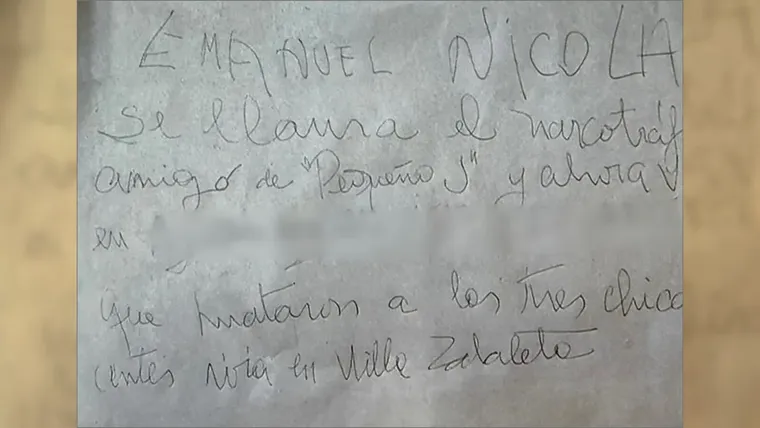 EMANUEL NICOLA
Se llama el narcotráf
amigo de "Pequeño J" y ahora v
en
que mataron a las tres chica
(antes vivia en Villa Zabaleta